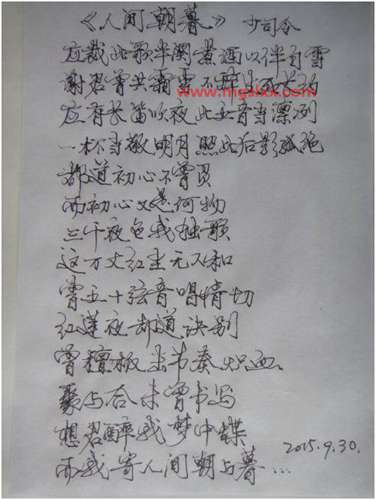 《人间朝暮》 少司命
应裁此歌半阕煮酒以伴白雪
谢君曾共霜雪不醉
www.mgshxx.com
应有长笛吹夜此去音当凛冽
一杯当敬明月照此后影孤绝
都道初心不曾灭
而初心又是何物
三千夜色我独歌
这万丈红尘无人和
曾五十弦音唱情切
红莲夜却道诀别
曾檀板来节奏炽血
聚与合未曾书写
想君醉我梦中蝶
而我寄人间朝与暮...
2015.9.30.